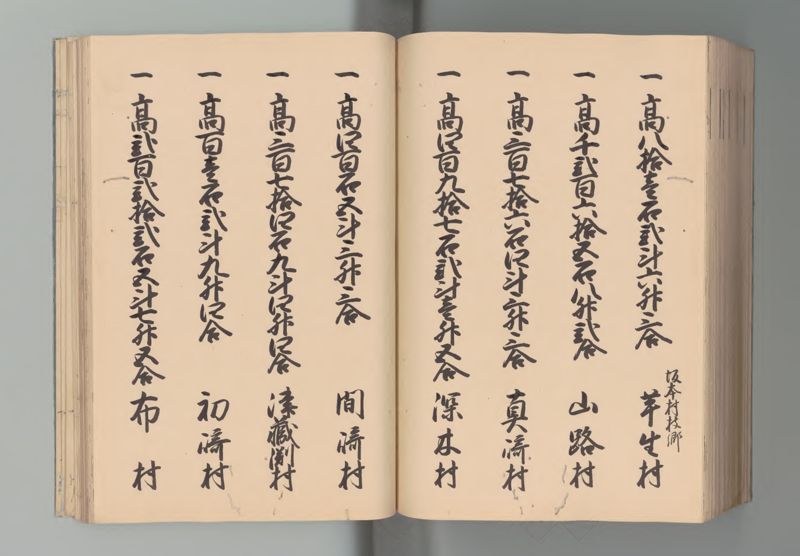 一高八拾壱石弐斗六升三合
坂本村枝郷
芋生村
一高千弐百六拾五石八升弐合
山路村
一高三百七拾六石四斗三升三合
真崎村
一高四百九拾七石弐斗壱升五合
深木村
一高四百石五斗三升三合
間崎村
一高三百七拾四石九斗四升四合
津蔵渕村
一高百壱石弐斗九升四合
初崎村
一高弐百弐拾弐石五斗七升五合
布村